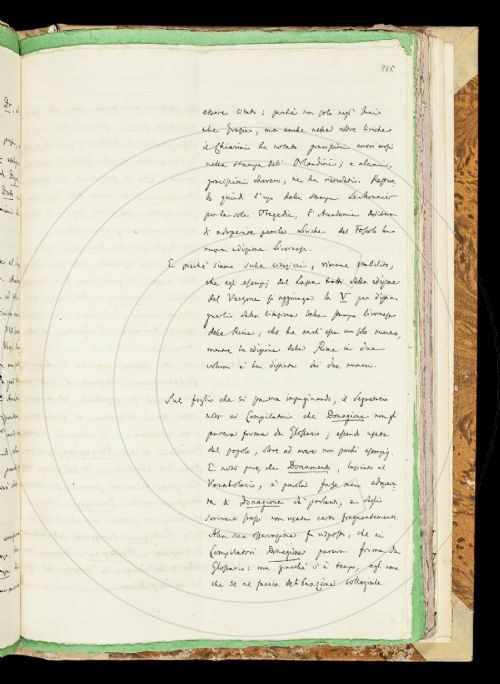 essere citato; perchè non solo negl'Inni
alle Grazie, ma anche nelle altre liriche
il Chiarini ha notato gravissimi errori corsi
nella stampa dell'Orlandini; e alcuni,
gravissimi davvero, ne ha ricordati. Restando
quindi l'uso della stampa Lemonnier
per le sole Tragedie, l'Accademia desidera
si adoperasse per le Liriche del Foscolo la
nuova edizione Livornese.
E perchè siamo sulle citazioni, rimane stabilito,
che agli esempj del Lasca tratti dalla edizione
del Verzone si aggiunga la V per distin-
guerli dalla citazione della stampa Livornese
delle Rime, che ha anch'essa un solo numero,
mentre la edizione delle Rime in due
volumi è ben distinta dai due numeri.
Sul foglio che si sta ora impaginando, il Segretario
notò ai Compilatori che Donagione non gli
pareva forma da Glossario; essendo usata
dal popolo, oltre ad avere non pochi esempj.
E notò pure, che Donamento, lasciato al
Vocabolario, è parola forse meno adopera-
ta di Donagione da' parlanti, e dagli
scriventi stessi non usata certo frequentemente.
Alla sua osservazione fu risposto, che ai
Compilatori Donagione pareva forma da
Glossario: ma giacchè v'è tempo,
che se ne faccia deliberazione collegiale.